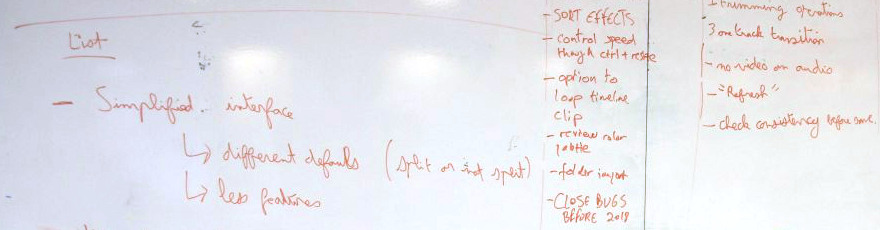 List
- Simplified interface
↳ different defaults (split or not split)
↳ less features
- SORT EFFECTS
- control speed
though ctrl + resize
- option to
loop timeline
clip
- review color
- folder import
- CLOSE BUGS
BEFORE 2018
trimming operations
3 one track transition
- no video on audio
- "Refresh"
- check consistency before save.